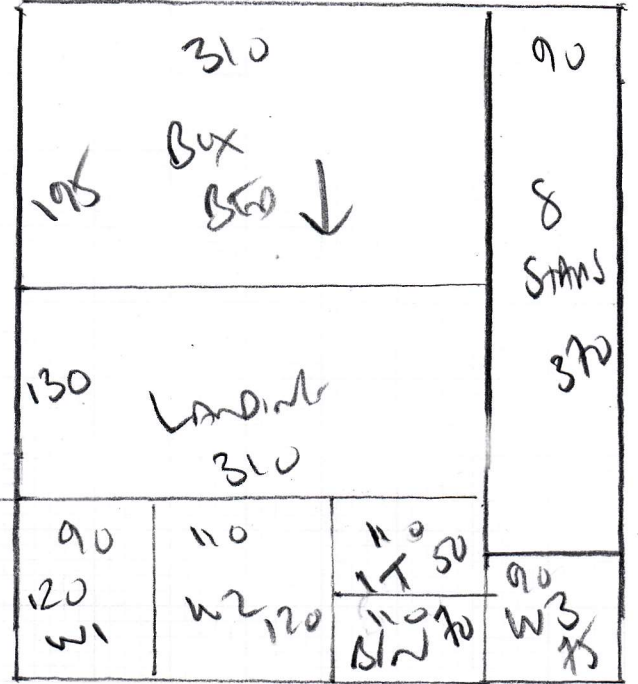 310
90
BOX
BED
195
8
STAIRS
370
130
LANDING
310
90
120
W1
110
W2 120
110
IT 50
110
BIN 70
90
W3
75